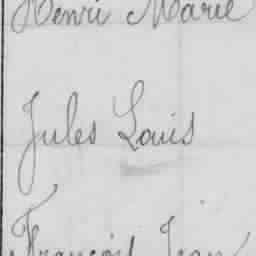 Henri Marie
Jules Louis
François Jean